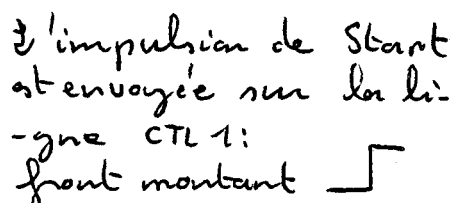 L'impulsion de Start
est envoyée sur la li-
-gne CTL 1:
front montant